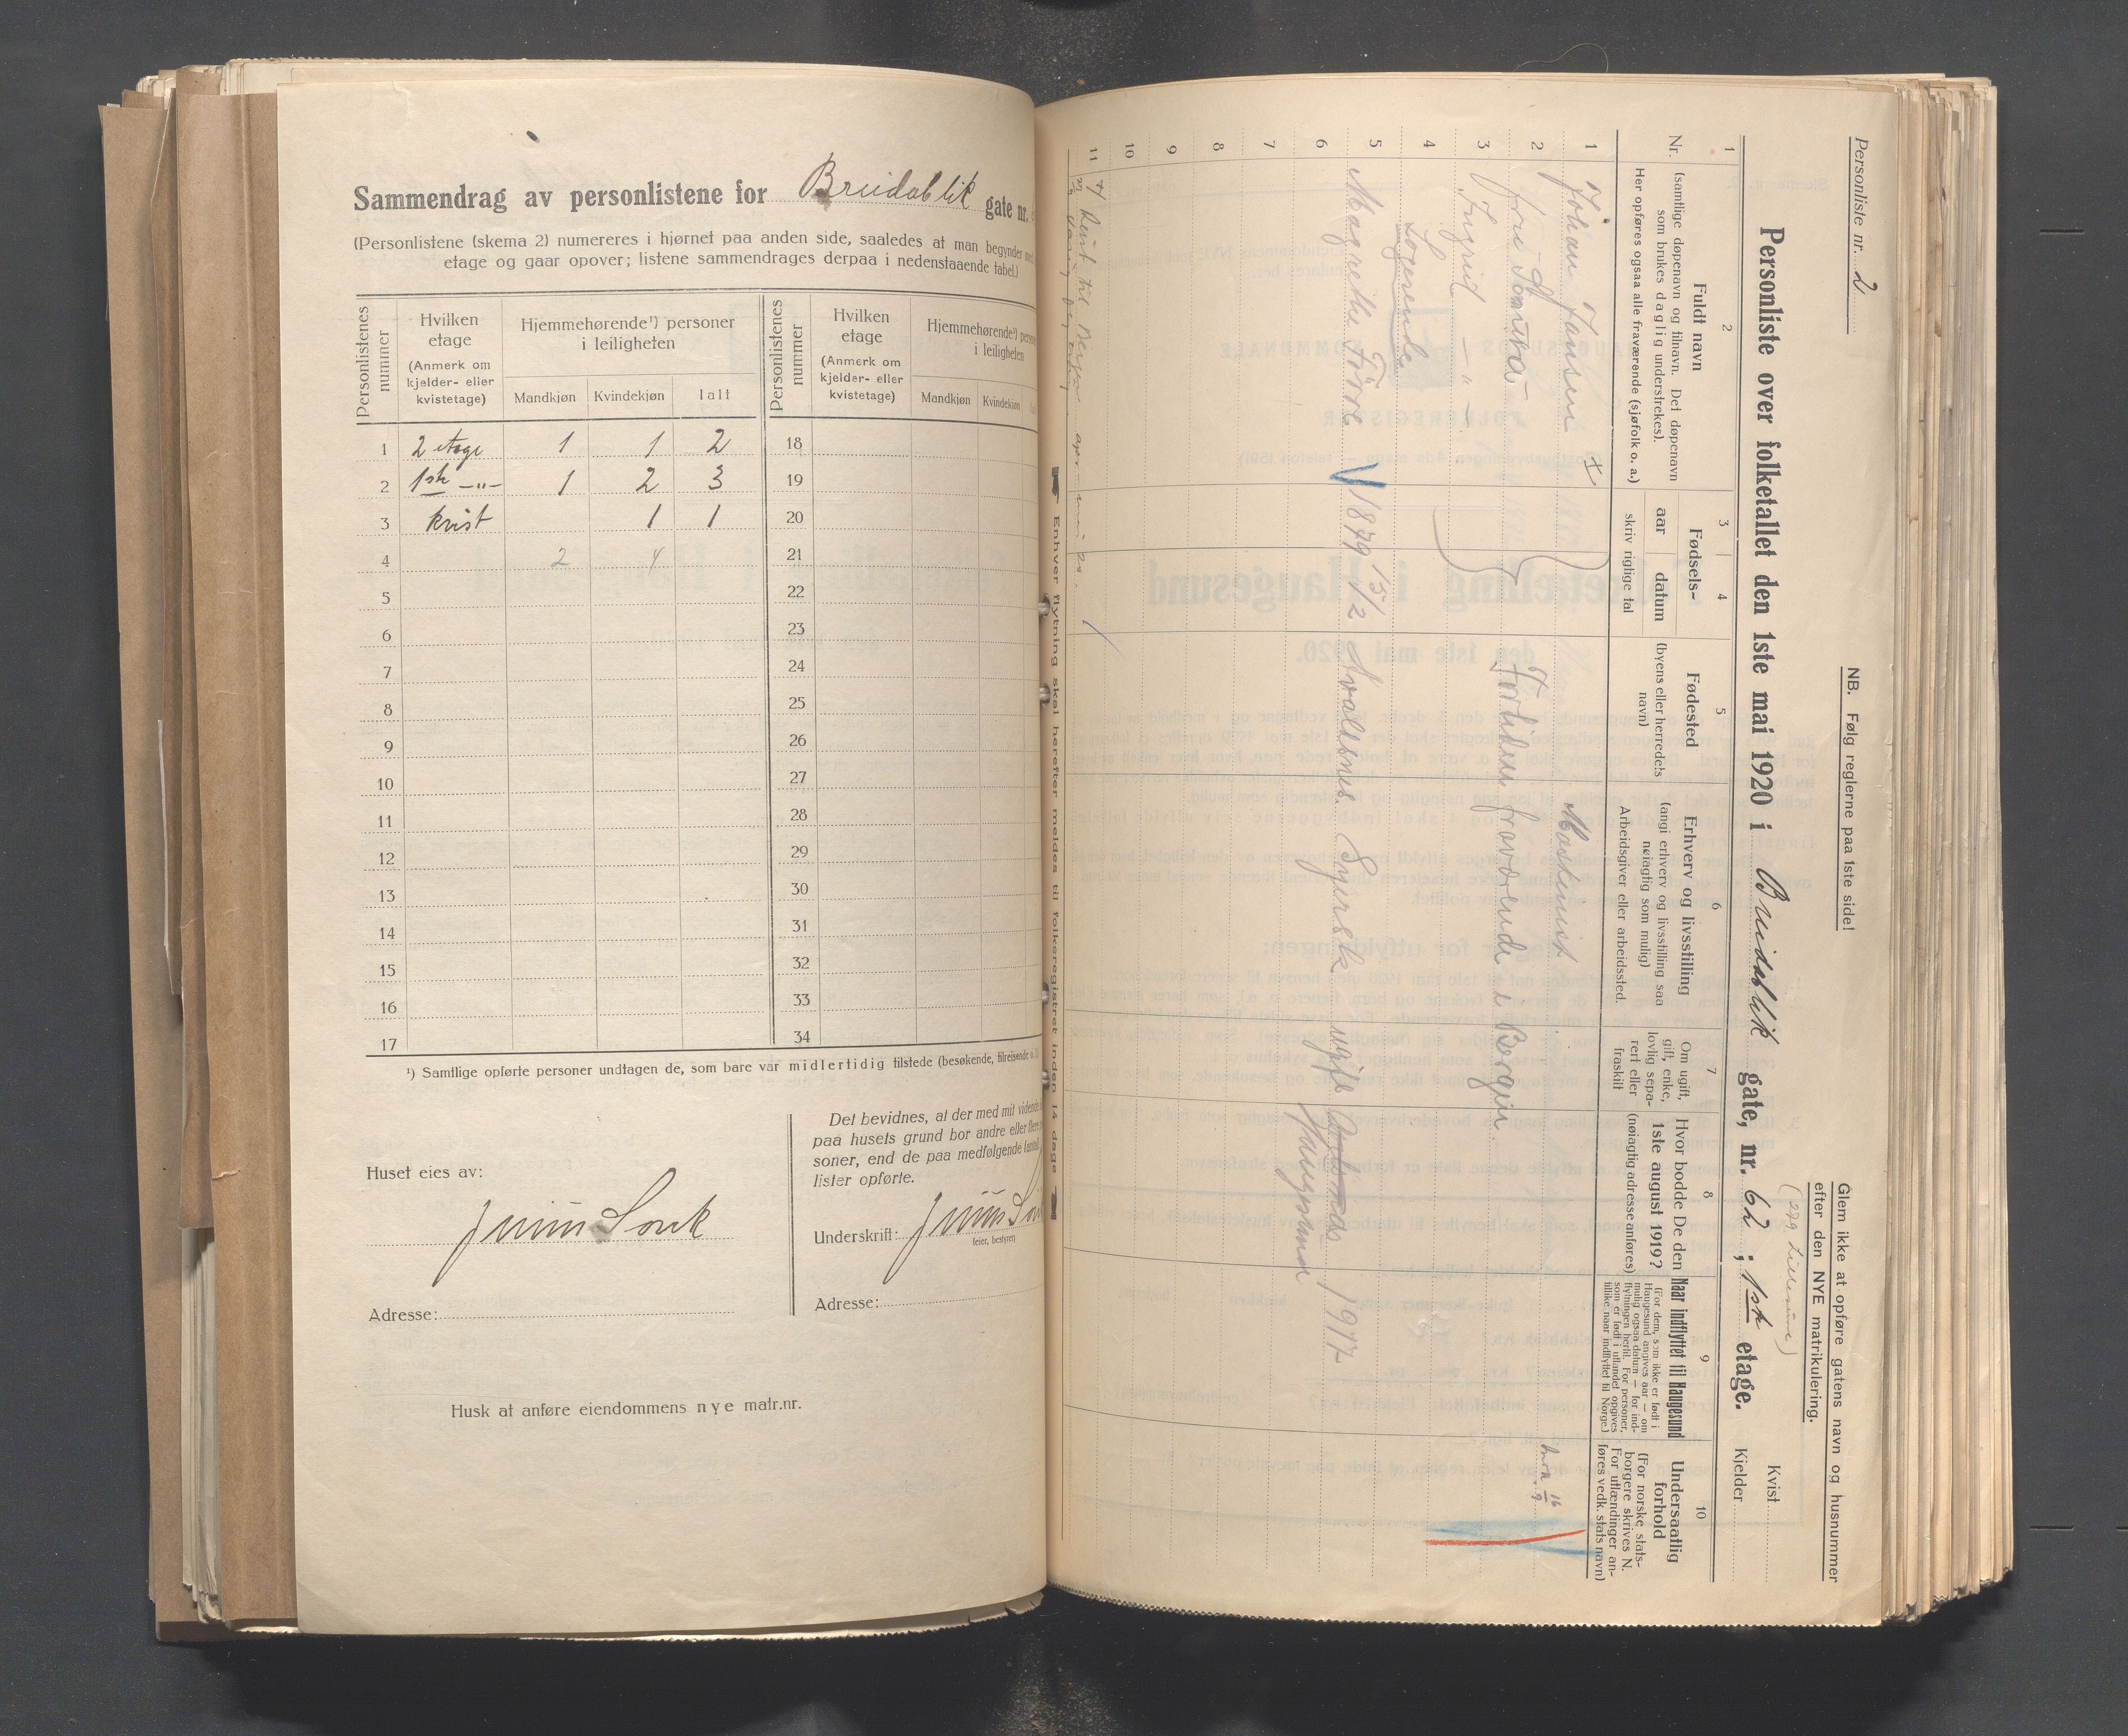 Sammendrag av personlistene for Breidablik gate nr.
(Personlistene (skema 2) numereres i hjørnet paa anden side, saaledes at man begynder med
etage og gaar opover; listene sammendrages derpaa i nedenstaaende tabel.)
Personlistenes nummer
Hvilken etage
(Anmerk om kjelder- eller kvistetage)
Hjemmehørende¹) personer i leiligheten
Mandkjøn Kvindekjøn Ialt
Personlistenes nummer
Hvilken etage
(Anmerk om kjelder- eller kvistetage)
Hjemmehørende¹) i leiligheten
Mandkjøn Kvindekjøn
1 2 etage 1 1 2 18
2 1ste -"- 1 2 3 19
3 kvist 1 1 20
4 2 4 21
5 22
6 23
7 24
8 25
9 26
10 27
11 28
12 29
13 30
14 31
15 32
16 33
17 34
¹) Samtlige opførte personer undtagen de, som bare var midlertidig tilstede (besøkende, tilreisende
Huset eies av:
Adresse:
Det bevidnes, at der med mit vidende
paa husets grund bor andre eller flere
soner, end de paa medfølgende (antal)
lister opførte.
Underskrift:
(eier, bestyrer)
Adresse:
Husk at anføre eiendommens nye matr.nr.
Personliste nr. 2
NB. Følg reglerne paa 1ste side!
Glem ikke at opføre gatens navn og husnummer
efter den NYE matrikulering.
Personliste over folketallet den 1ste mai 1920 i Breidablik gate, nr. 62; 1ste etage.
Kvist
Kjelder
1 2 3 4 5 6 7 8 9 10
Nr.
Fuldt navn
(samtlige døpenavn og tilnavn. Det døpenavn
som brukes daglig understrekes).
Her opføres ogsaa alle fraværende (sjøfolk o. a.)
Fødsels-
aar datum
skriv rigtige tal
Fødested
(byens eller herredets navn)
Erhverv og livsstilling
(angi erhverv og livsstilling saa
nøiagtig som mulig)
Arbeidsgiver eller arbeidssted.
Om ugift,
gift, enke,
lovlig sepa-
rert eller
fraskilt
Hvor bodde De den
1ste august 1919?
(nøiagtig adresse anføres)
Naar indflyttet til Haugesund
(For dem, som ikke er født i
Haugesund angives aar — om
mulig ogsaa datum — for ind-
flytningen hertil. For personer,
som er født i utlandet opgives
tillike naar indflyttet til Norge.)
Undersaatlig
forhold
(For norske stats-
borgere skrives N.
For utlændinger an-
føres vedk. stats navn)
1 Johan Jansen Maskinist
2
3 Ingrid -"- fortiden fraværende i Bergen.
4 Logerende
5 Magrethe 1879 15/2 ugift 1917
6 Haugesund
7
8
9
10
11
Enhver flytning skal herefter meldes til folkeregistret inden 14 dage